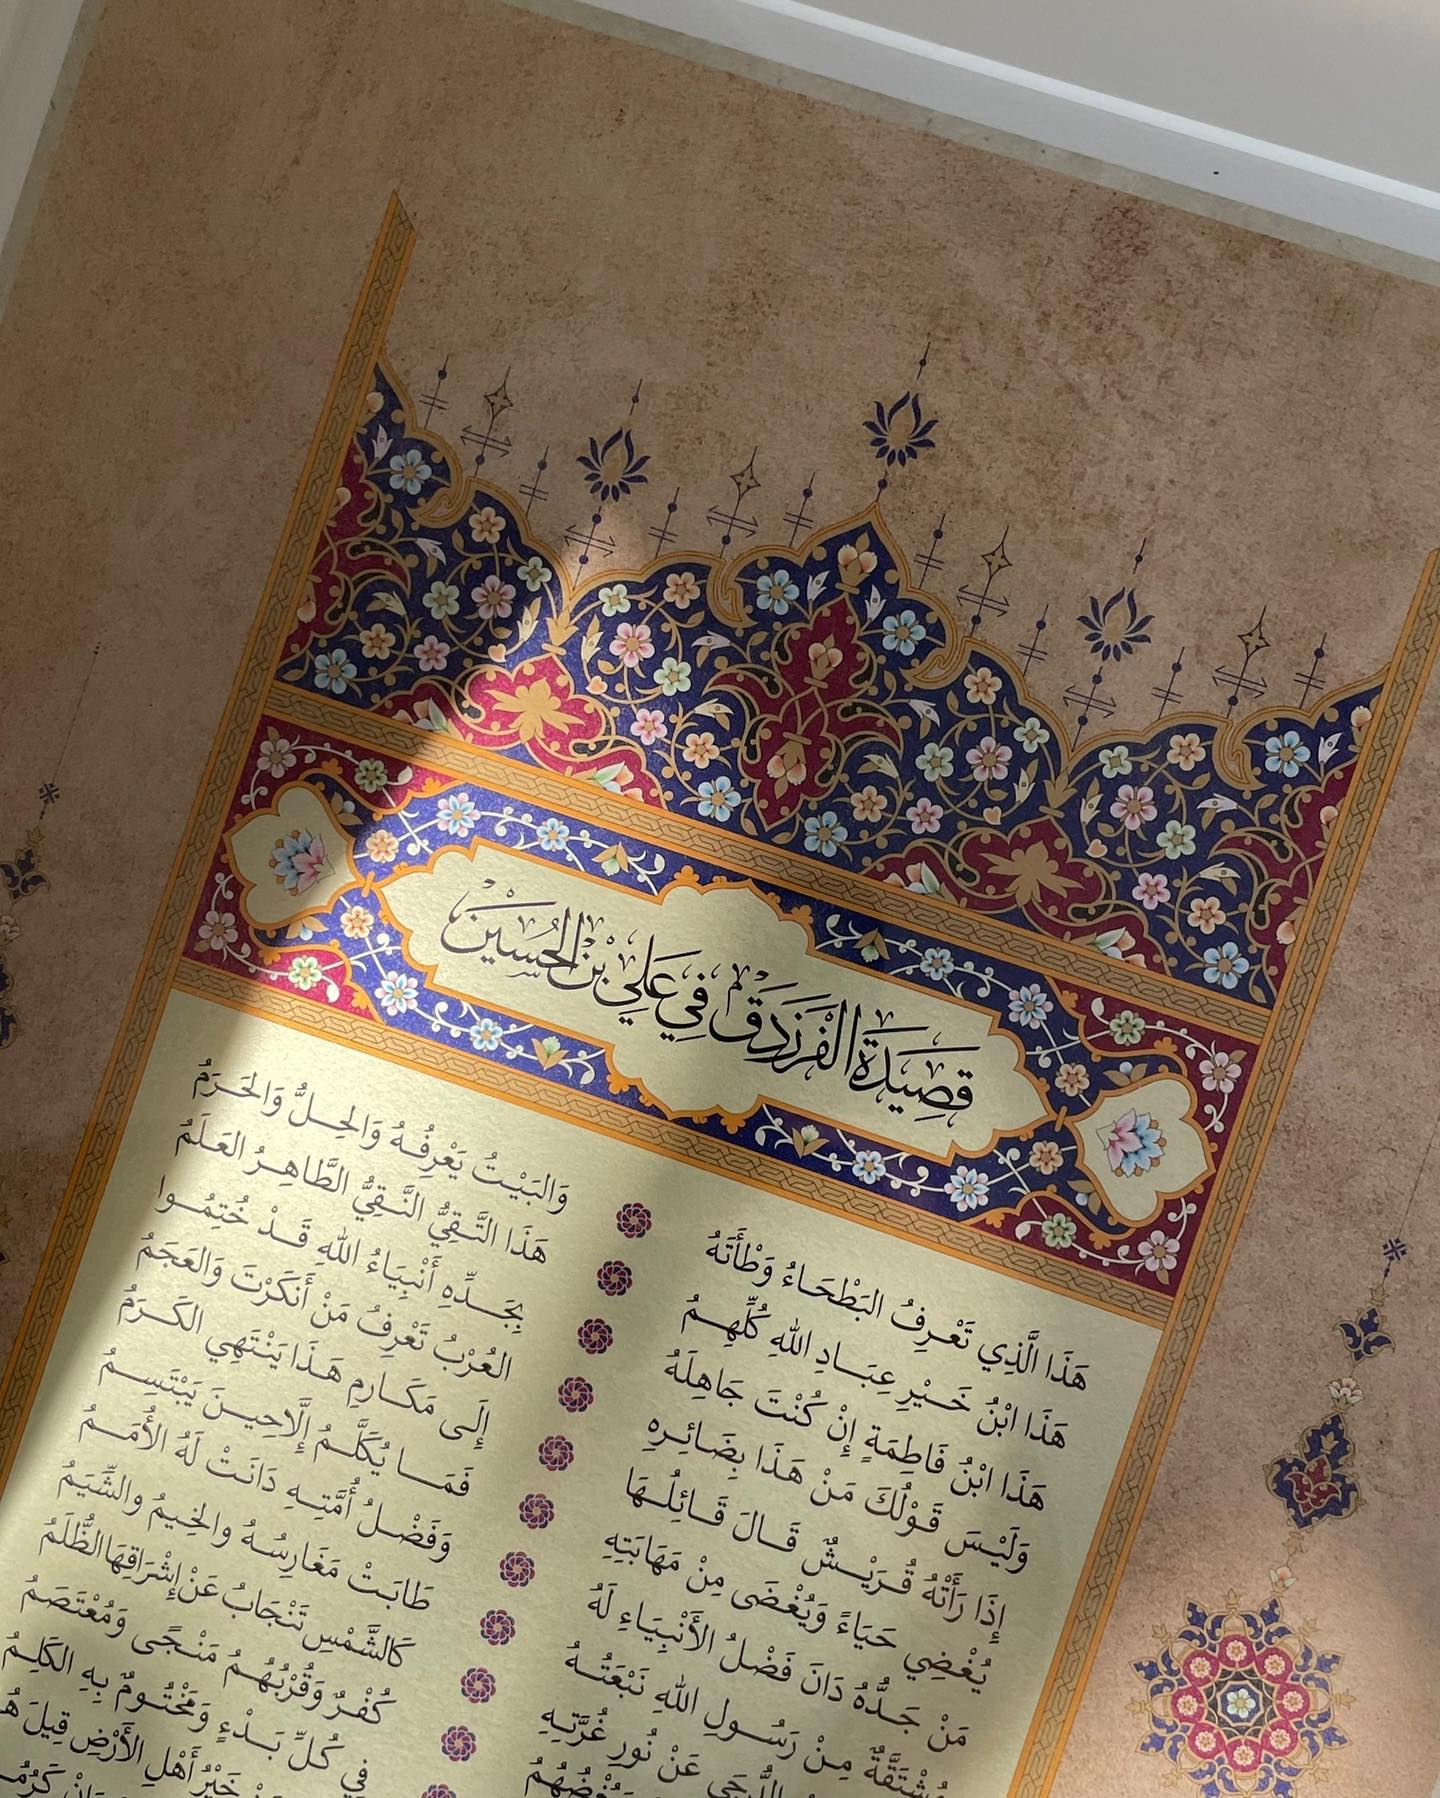 قَصِيدَةُ الفَرَزْدَقِ فِي عَلِيِّ بْنِ الحُسَيْن
هَذَا الَّذِي تَعْرِفُ البَطْحَاءُ وَطْأَتَهُ وَالبَيْتُ يَعْرِفُهُ وَالحِلُّ وَالحَرَمُ
هَذَا ابْنُ خَيْرِ عِبَادِ اللهِ كُلِّهِمُ هَذَا التَّقِيُّ النَّقِيُّ الطَّاهِرُ العَلَمُ
هَذَا ابْنُ فَاطِمَةٍ إِنْ كُنْتَ جَاهِلَهُ بِجَدِّهِ أَنْبِيَاءُ اللهِ قَدْ خُتِمُوا
وَلَيْسَ قَوْلُكَ مَنْ هَذَا بِضَائِرِهِ العُرْبُ تَعْرِفُ مَنْ أَنَكَرْتَ وَالعَجَمُ
إِذَا رَأَتْهُ قُرَيْشٌ قَالَ قَائِلُهَا إِلَى مَكَارِمِ هَذَا يَنْتَهِي الكَرَمُ
يُغْضِي حَيَاءً وَيُغْضَى مِنْ مَهَابَتِهِ فَمَا يُكَلَّمُ إِلَّا حِينَ يَبْتَسِمُ
مَنْ جَدُّهُ دَانَ فَضْلُ الأَنْبِيَاءِ لَهُ وَفَضْلُ أُمَّتِهِ دَانَتْ لَهُ الأُمَمُ
مُشْتَقَّةٌ مِنْ رَسُولِ اللهِ نَبْعَتُهُ طَابَتْ مَغَارِسُهُ والخِيمُ والشِّيَمُ
الدُّجَى عَنْ نُورِ غُرَّتِهِ كَالشَّمْسِ تَنْجَابُ عَنْ إِشْرَاقِهَا الظُّلَمُ
كُفْرٌ وَقُرْبُهُمُ مَنْجًى وَمُعْتَصَمُ
فِي كُلِّ بَدْءٍ وَمَخْتُومٌ بِهِ الكَلِمُ
خَيْرُ أَهْلِ الأَرْضِ قِيلَ